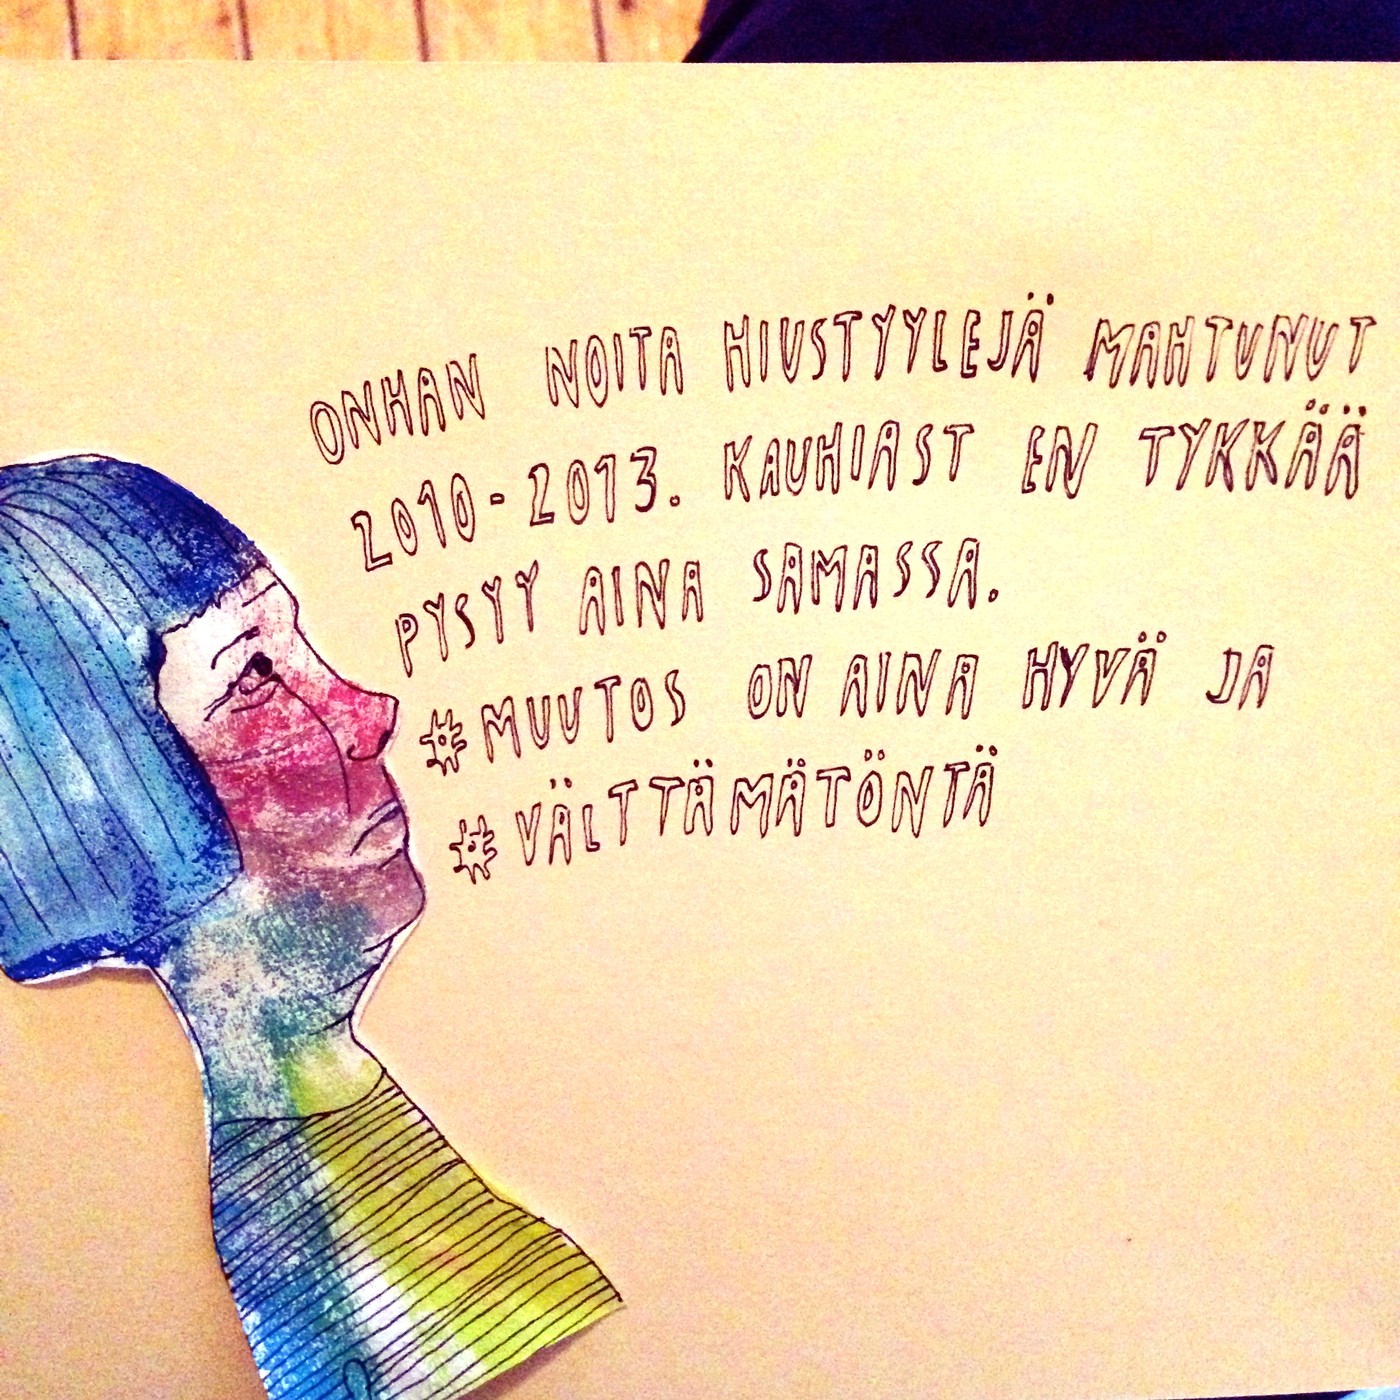 ONHAN NOITA HIUSTYYLEJÄ MAHTUNUT
2010-2013. KAUHIAST EN TYKKÄÄ
PYSYY AINA SAMASSA.
#MUUTOS ON AINA HYVÄ JA
#VÄLTTÄMÄTÖNTÄ